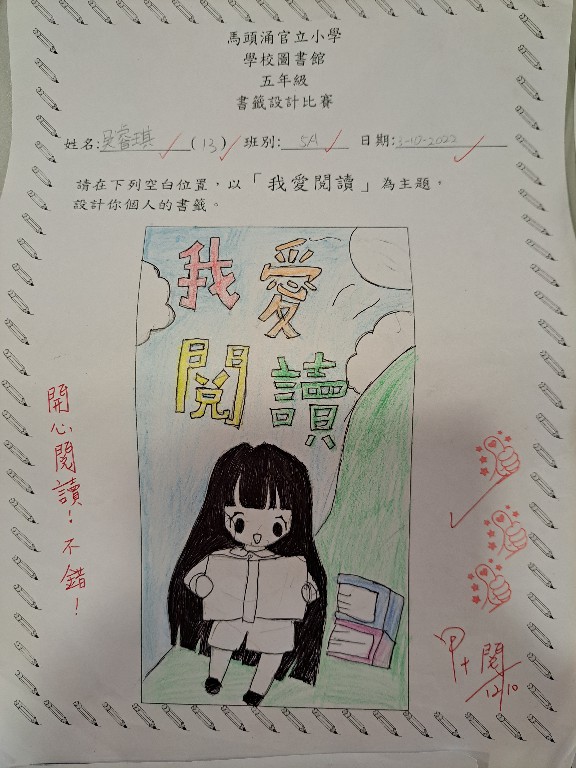 馬頭涌官立小學
學校圖書館
五年級
書籤設計比賽
姓名:吳睿琪(13) 班別:5A 日期:3-10-2022
請在下列空白位置，以「我愛閱讀」為主題，
設計你個人的書籤。
我愛
閱讀
開心閱讀！不錯！
甲+
閱
12/10